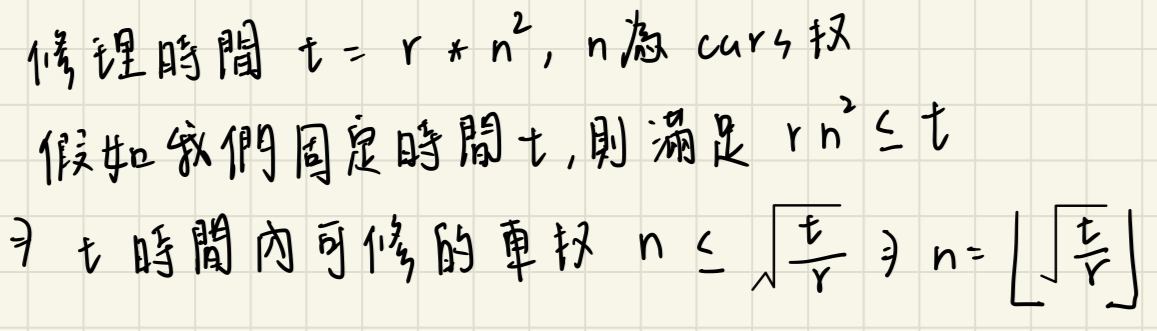 修理時間 t = r * n², n為 cars 数
假如我們固定時間 t, 則滿足 r n² ≤ t
⇒ t 時間內可修的車数 n ≤ √(t/r) ⇒ n = ⌊√(t/r)⌋